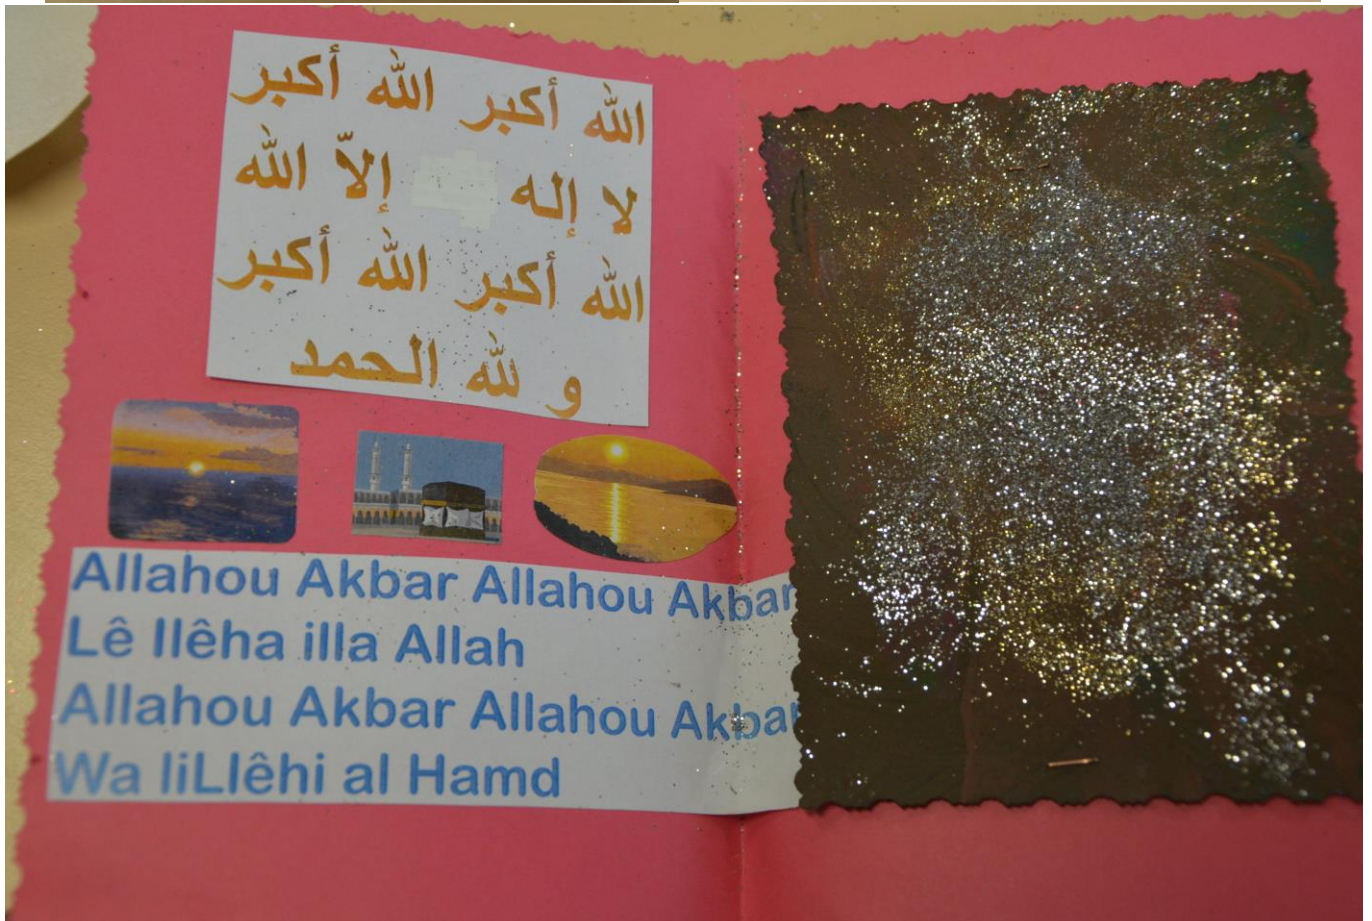 الله أكبر الله أكبر
لا إله إلاّ الله
الله أكبر الله أكبر
و لله الحمد
Allahou Akbar Allahou Akbar
Lê Ilêha illa Allah
Allahou Akbar Allahou Akbar
Wa liLlêhi al Hamd